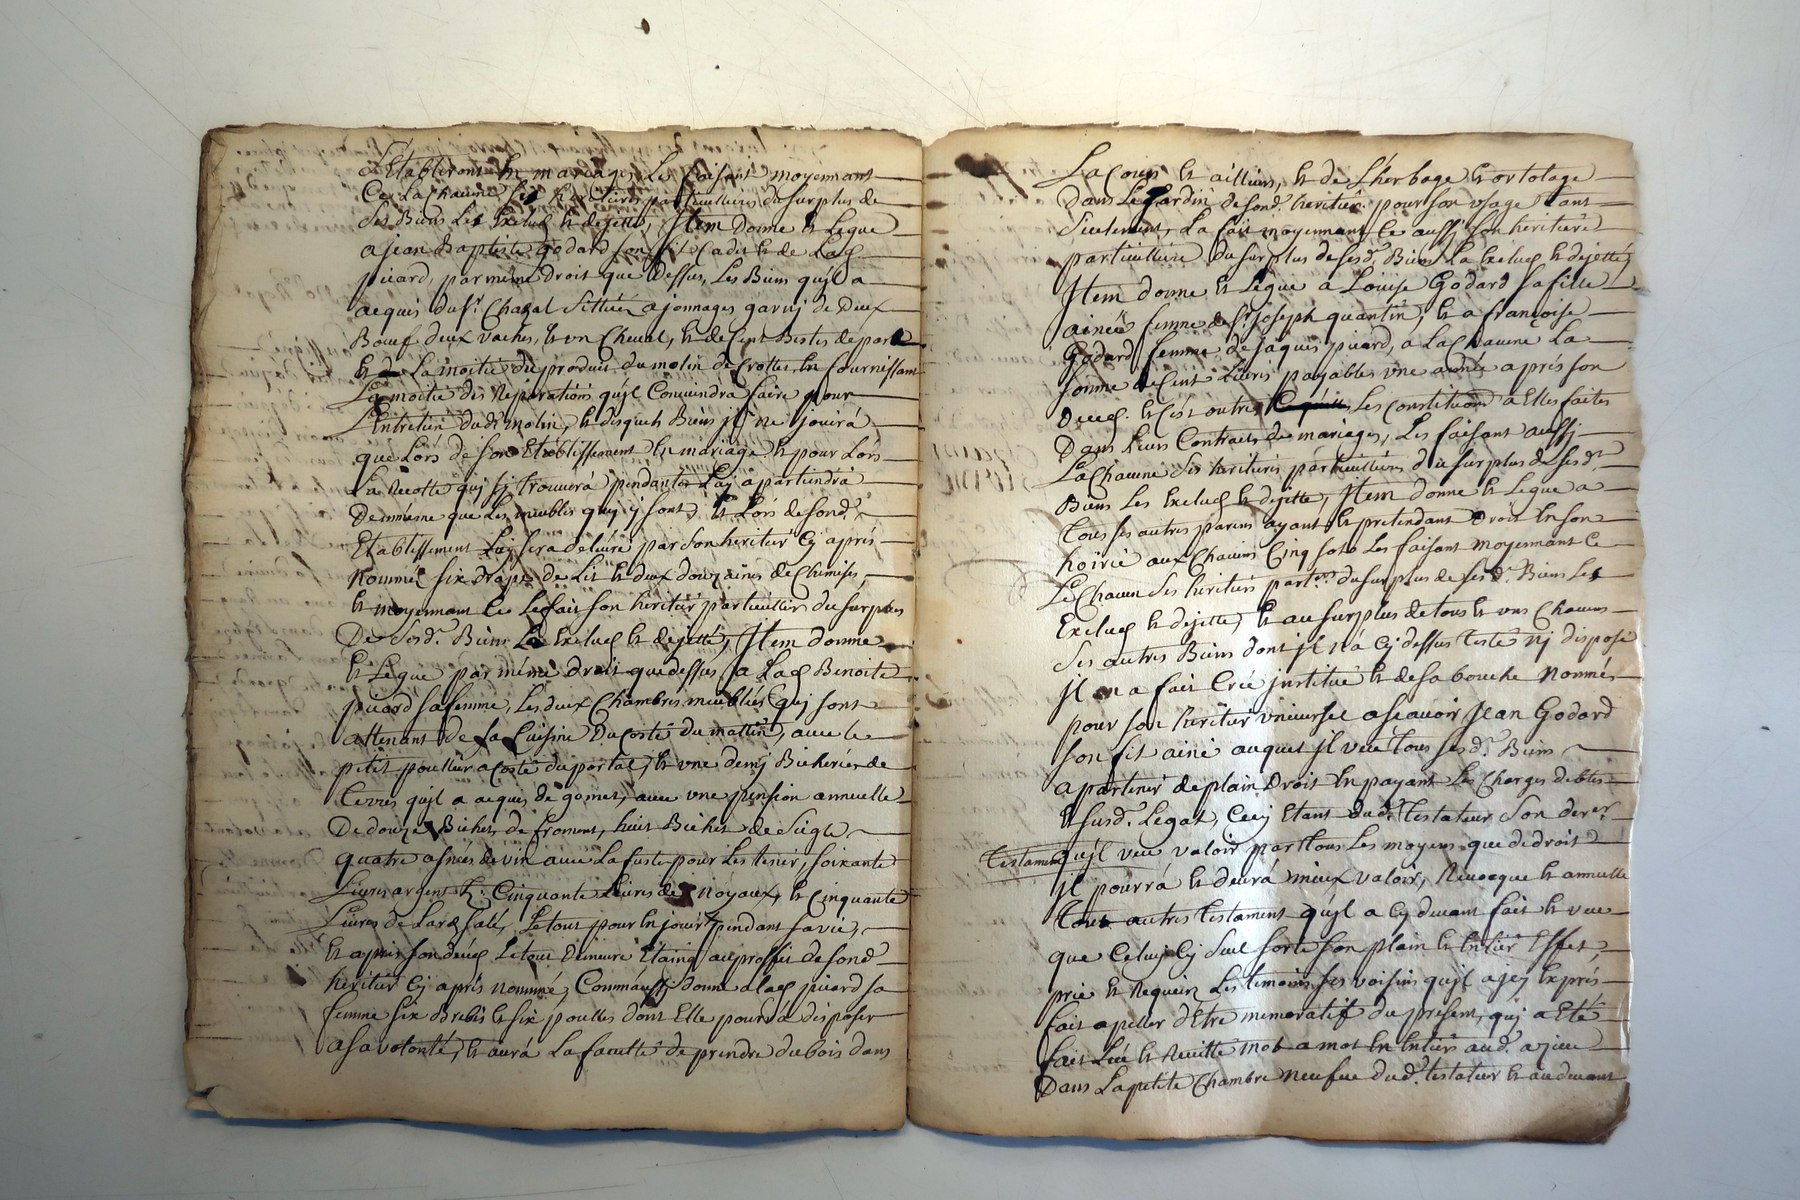 d'Etabliront En mariages, Les faisant moyennant
Ce La Chacune Ses heritieres particulieres du surplus de
Ses Biens Les Exclud Et dejette, Item Donne Et Legue
a Jean Baptiste Godard son fils Cadit Et de Lad
picard, par meme Droit que dessus, Les Biens qu'jl a
acquis du Sr Chazal Sittués a jonnages garnj de Deux
Bœuf deux vaches, Et vn Cheval, Et de Cent Bestes de
Et La moitié du produit du molin de Crottes En fournissant
La moitié des Reparations qu'jl Conviendra faire pour
L'Entretien dud. molin, Et desquels Biens jl ne jouira
que Lors de son Etablissement En mariage Et pour Lors
La Recolte quj sj trouvera pendante Luj apartiendra
De meme que Les meubles quj y sont, Et Lors de sond.
Etablissement Luj sera delivré par son heritier Cj aprés
Nommé six draps de Lit Et deux douzaines de Chemises,
Et moyennant Ce Le fait son heritier particullier du surplus
De Sesd. Biens Le Exclud Et dejetté, Item donne
Et Legue par méme droit que dessus a Lad Benoite
picard sa femme, Les deux Chambres meublées quj sont
attenant de sa Cuisine Du Costé du mattin, avec le
petit poullier a Costé du portail, Et vne demj Bicherée de
terres qu'jl a acquis de gomet, avec vne pension annuelle
De douze Bichets de froment, huit Bichet de Siegle
quatre asnées de vin avec La fuste pour Les tenir, soixante
Livres argent Et Cinquante Livres de Noyaux, Et Cinquante
Livres de Lard Salé, Le tout pour En jouir pendant sa vie,
Et aprés son decés Le tout Demeure Etaint au proffit de sond.
heritier Cj aprés nommé, Comm'aussj donne a lad picard sa
femme six Brebis Et six poulles dont Elle pourra disposer
a sa volonté, Et aura La faculté de prendre du bois dans
La Cour Et ailliurs, Et de L'herbage Et ortolage
Dans Le Jardin de sond. heritier pour son vsage Tant
Seulement, La fait moyennant Ce aussj son heritiere
particulliere Du surplus de sesd. Biens La Exclud Et dejetté,
Item donne Et Legue a Louise Godard sa fille
ainée femme de Sr Joseph quantin, Et a françoise
Godard femme de jaques picard, a La Chacune La
somme de Cent Livres payables vne année aprés son
Deced. Et Cest outre Les Constitutions a Elles faites
Dans Leurs Contracts de mariages, Les faisant aussj
La Chacune Ses heritieres particullieres du surplus de Sesd.
Biens Les Exclud Et dejette, Item donne Et Legue a
tous ses autres parens ayant Et pretendant Droit En son
hoirie aux Chacuns Cinq sols Les faisant moyennant Ce
Le Chacun Ses heritiers part.rs du surplus de Sesd. Biens Les
Exclud Et dejette, Et au surplus de tous Et vns Chacuns
Ses autres Biens dont jl n'a Cj dessus testé nj disposé
jl en a fait Créé jnstitué Et de sa bouche Nommés
pour son heritier vniversel a scavoir Jean Godard
son fils ainé auquel jl veut tous Sesd. Biens
apartenir de plain Droit En payant Les Charges debtes
Et susd. Legat, Cecj Etant dud. Testateur Son der.er
Testament qu'jl veut valoir par tous Les moyens que de droit
jl pourra Et devra mieux valoir, Revocque Et annulle
tout autres testament qu'jl a Cj devant fait Et veut
que Celuy Cj Seul sorte son plain Et Entier Effet,
prie Et Requeir Les temoins ses voisins qu'jl a jcy Exprés
fait apeller d'Etre memoratif du present, quj a Eté
fait Leu Et Recitté mot a mot En Entier aud. azieu
Dans La petite Chambre neufve dud. testateur Et au devant